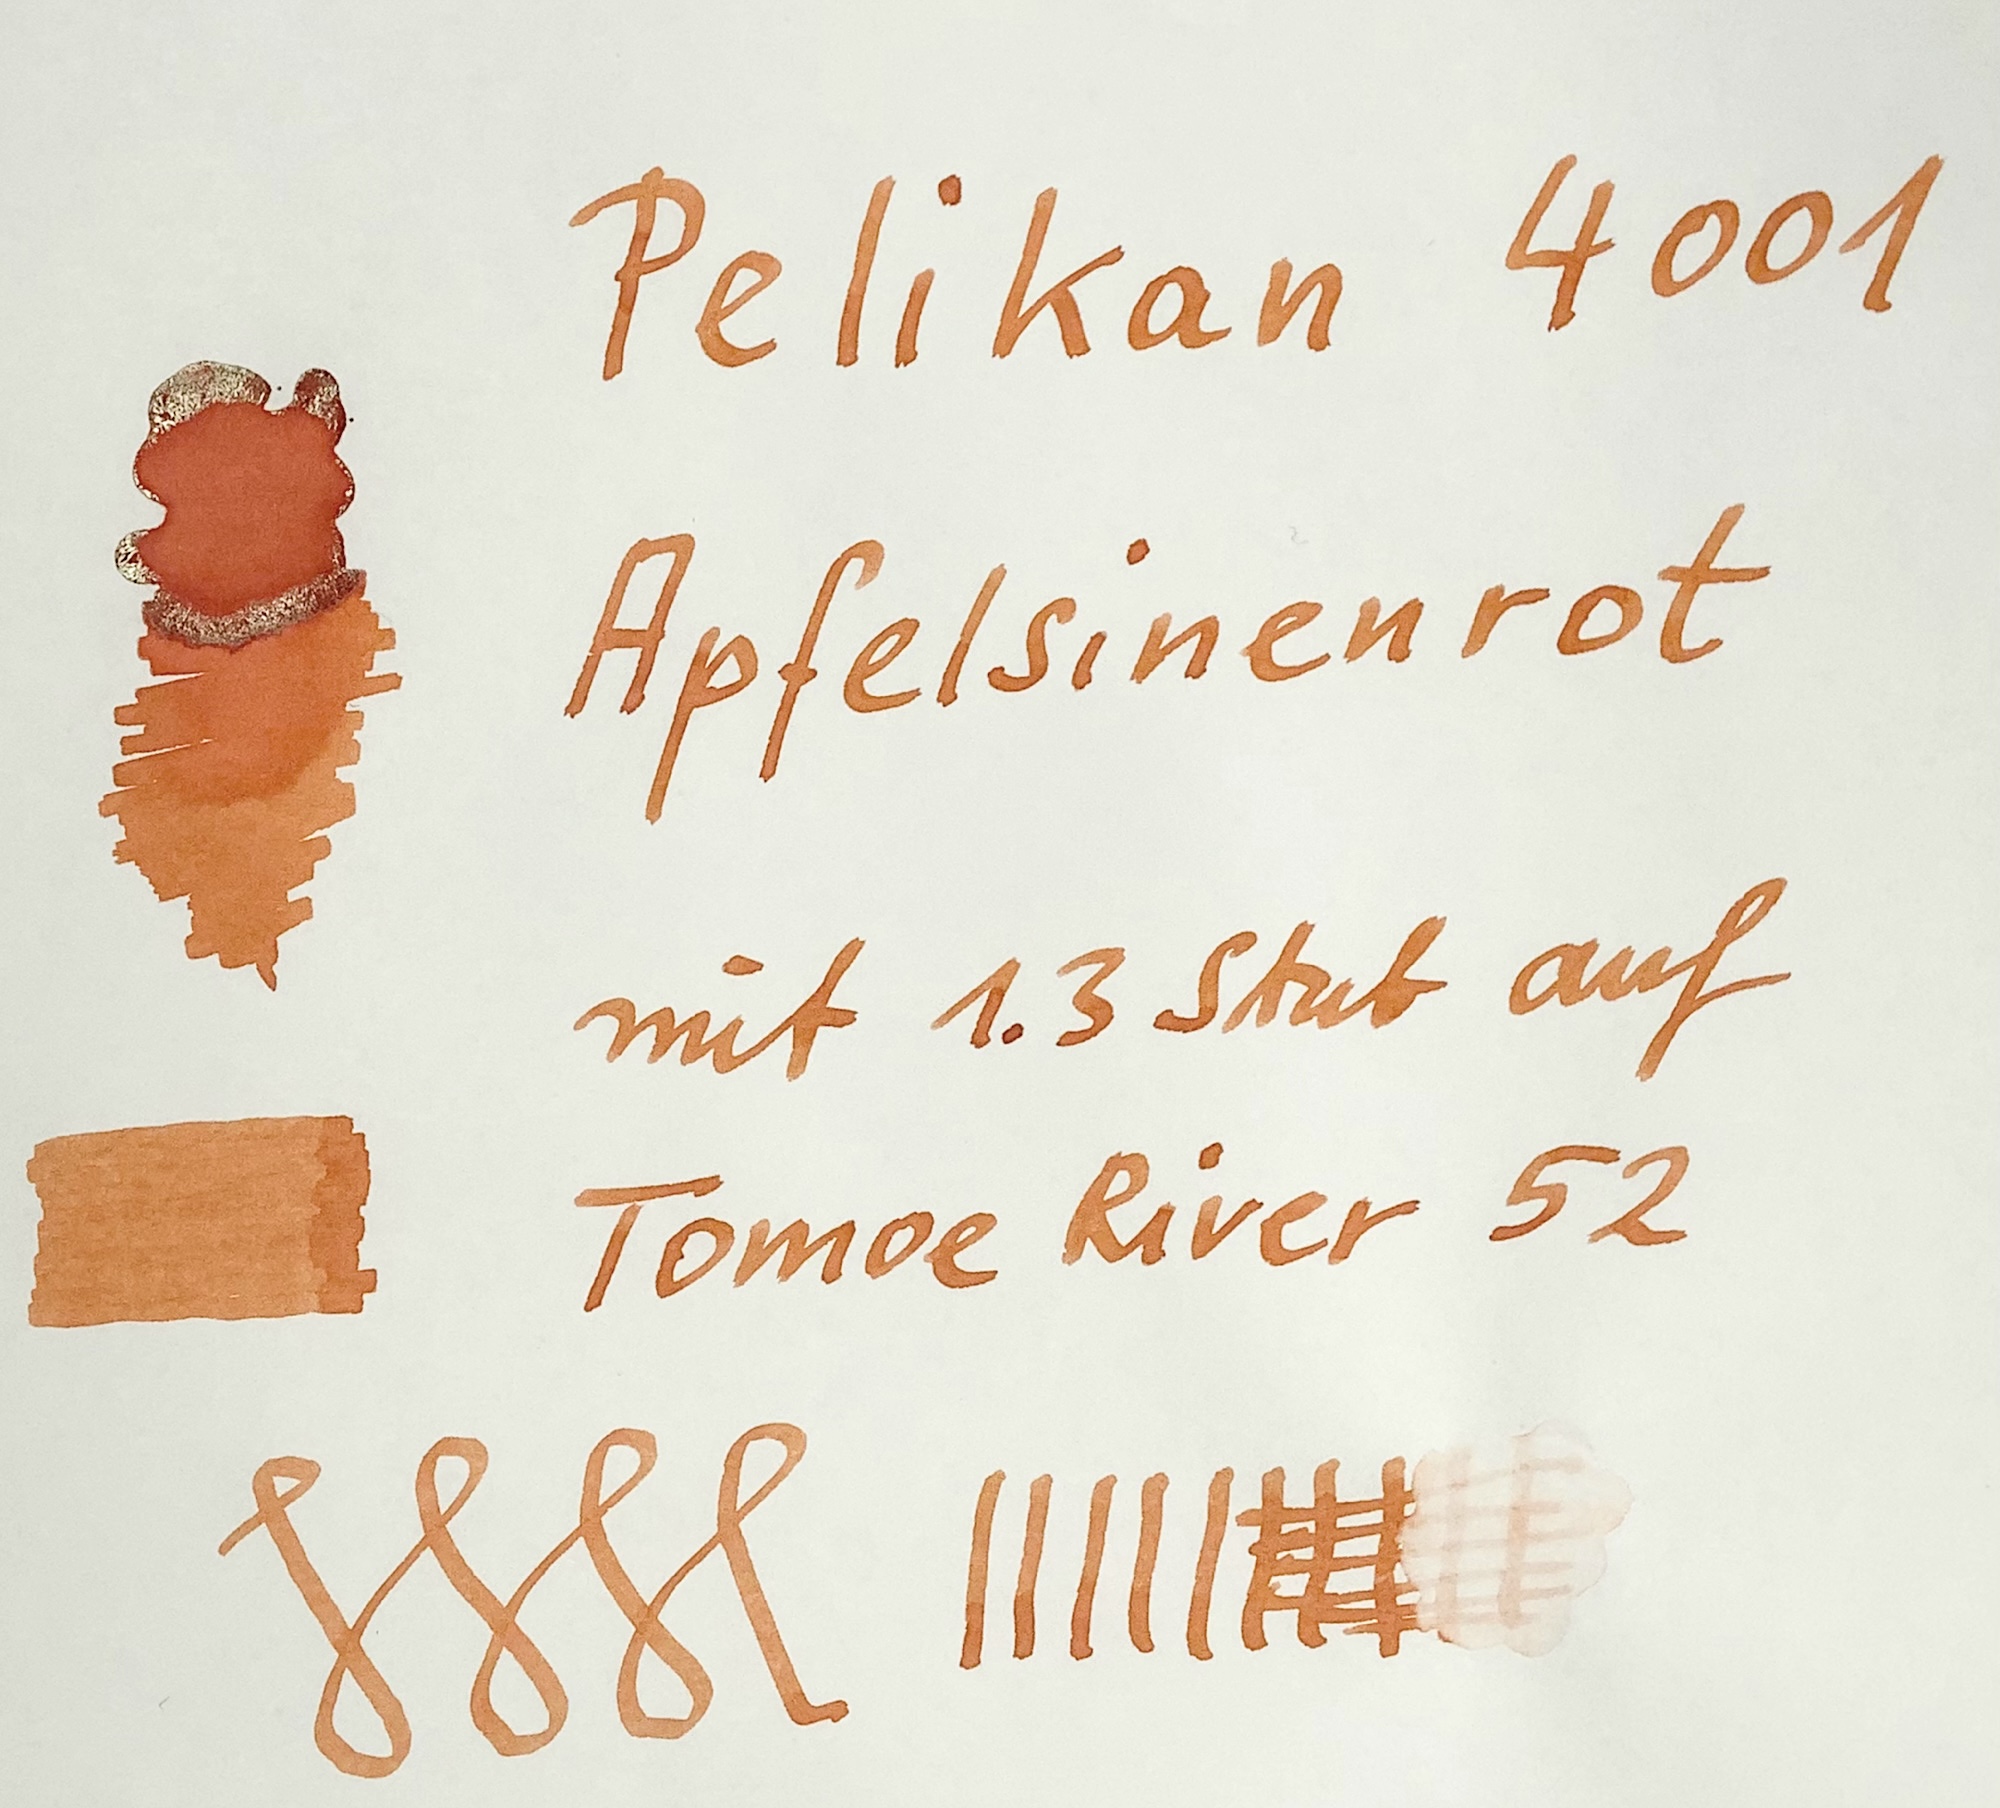 Pelikan 4001
Apfelsinenrot
mit 1.3 Stub auf
Tomoe River 52